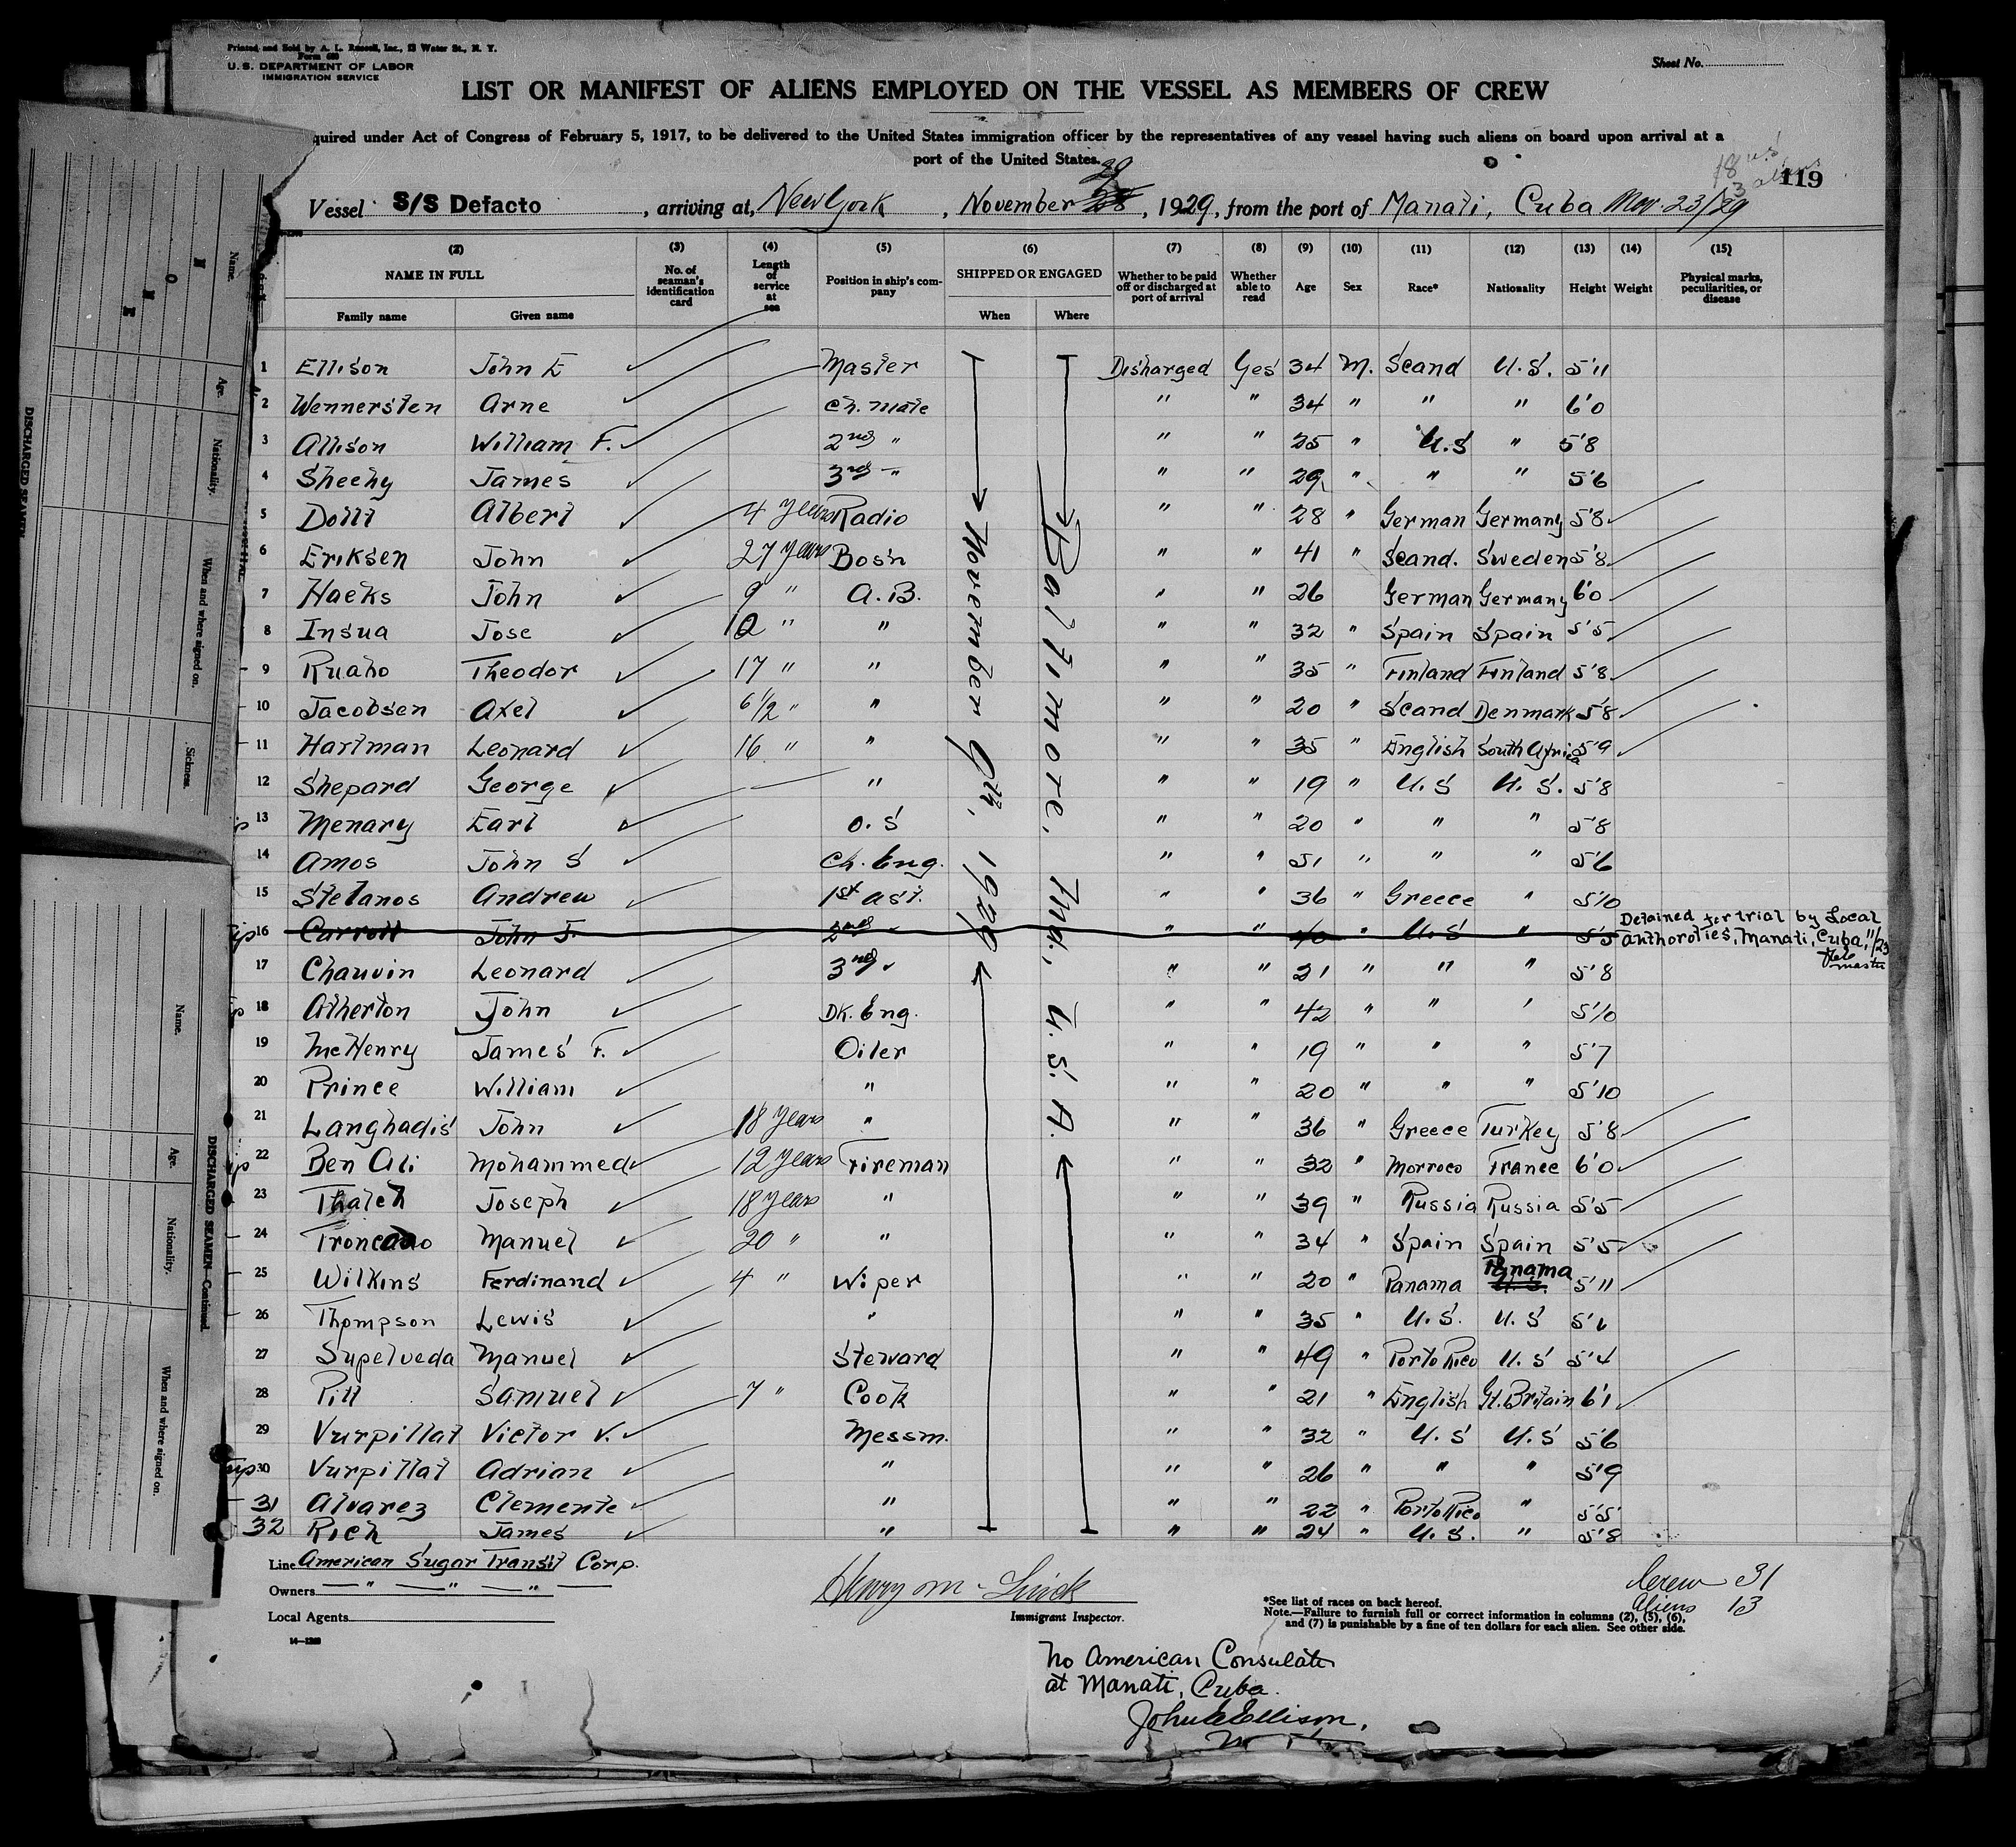 Printed and Sold by A. L. Russell, Inc., 13 Water St., N. Y.
Form 680
U. S. DEPARTMENT OF LABOR
IMMIGRATION SERVICE
Sheet No.
LIST OR MANIFEST OF ALIENS EMPLOYED ON THE VESSEL AS MEMBERS OF CREW
quired under Act of Congress of February 5, 1917, to be delivered to the United States immigration officer by the representatives of any vessel having such aliens on board upon arrival at a
port of the United States.
18 U.S.
13 aliens
119
Vessel S/S Defacto, arriving at, New York, November 29, 1929, from the port of Manati, Cuba Nov. 23/29
(2) (3) (4) (5) (6) (7) (8) (9) (10) (11) (12) (13) (14) (15)
NAME IN FULL No. of seaman's identification card Length of service at sea Position in ship's company SHIPPED OR ENGAGED Whether to be paid off or discharged at port of arrival Whether able to read Age Sex Race* Nationality Height Weight Physical marks, peculiarities, or disease
Family name Given name When Where
November 9th, 1929
Baltimore, Md., U. S. A.
1 Ellison John E Master Disharged Yes 34 M. Scand U.S. 5'11
2 Wennersten Arne Ch. Mate " " 34 " " " 6'0
3 Allison William F. 2nd " " " 25 " U.S " 5'8
4 Sheehy James 3rd " " " 29 " " " 5'6
5 Dollt Albert 4 years Radio " " 28 " German Germany 5'8
6 Eriksen John 27 years Bos'n " " 41 " Scand. Sweden 5'8
7 Haeks John 9 " A.B. " " 26 German Germany 6'0
8 Insua Jose 10 " " " " 32 " Spain Spain 5'5
9 Ruaho Theodor 17 " " " " 35 " Finland Finland 5'8
10 Jacobsen Axel 6 1/2 " " " " 20 " Scand Denmark 5'8
11 Hartman Leonard 16 " " " " 35 " English South Africa 5'9
12 Shepard George " " " 19 " U.S U.S. 5'8
13 Menary Earl O.S " " 20 " " " 5'8
14 Amos John S Ch. Eng. " " 51 " " " 5'6
15 Stefanos Andrew 1st ast. " " 36 " Greece " 5'10
16 Carroll John F. 2nd " " " 40 " U.S " 5'5 Detained for trial by Local
authoroties, Manati, Cuba, 11/23
master
17 Chauvin Leonard 3rd " " " 21 " " " 5'8
18 Atherton John Dk. Eng. " " 42 " " " 5'10
19 McHenry James F. Oiler " " 19 " " " 5'7
20 Prince William " " " 20 " " " 5'10
21 Langhadis John 18 years " " " 36 " Greece Turkey 5'8
22 Ben Ali Mohammed 12 years Fireman " " 32 " Morroco France 6'0
23 Joseph 18 years " " " 39 " Russia Russia 5'5
24 Manuel 20 " " " " 34 " Spain Spain 5'5
25 Wilkins Ferdinand 4 " Wiper " " 20 " Panama Panama 5'11
26 Thompson Lewis " " " 35 " U.S. U.S 5'6
27 Supelveda Manuel Steward " " 49 " Porto Rico U.S 5'4
28 Pitt Samuel 7 " Cook " " 21 " English Gt. Britain 6'1
29 Vurpillat Victor V. Messm. " " 32 " U.S U.S 5'6
30 Vurpillat Adrian " " " 26 " " " 5'9
31 Alvarez Clemente " " " 22 " Porto Rico " 5'5
32 Rich James " " " 24 " U.S. " 5'8
Line American Sugar Transit Corp.
Owners " " "
Local Agents
14—1240
Immigrant Inspector.
*See list of races on back hereof.
Note.—Failure to furnish full or correct information in columns (2), (5), (6),
and (7) is punishable by a fine of ten dollars for each alien. See other side.
Crew 31
Aliens 13
No American Consulate
at Manati, Cuba.
John E Ellison,
DISCHARGED SEAMEN
Name. Age. Nationality. When and where signed on. Sickness.
DISCHARGED SEAMEN—Continued.
Name. Age. Nationality. When and where signed on.